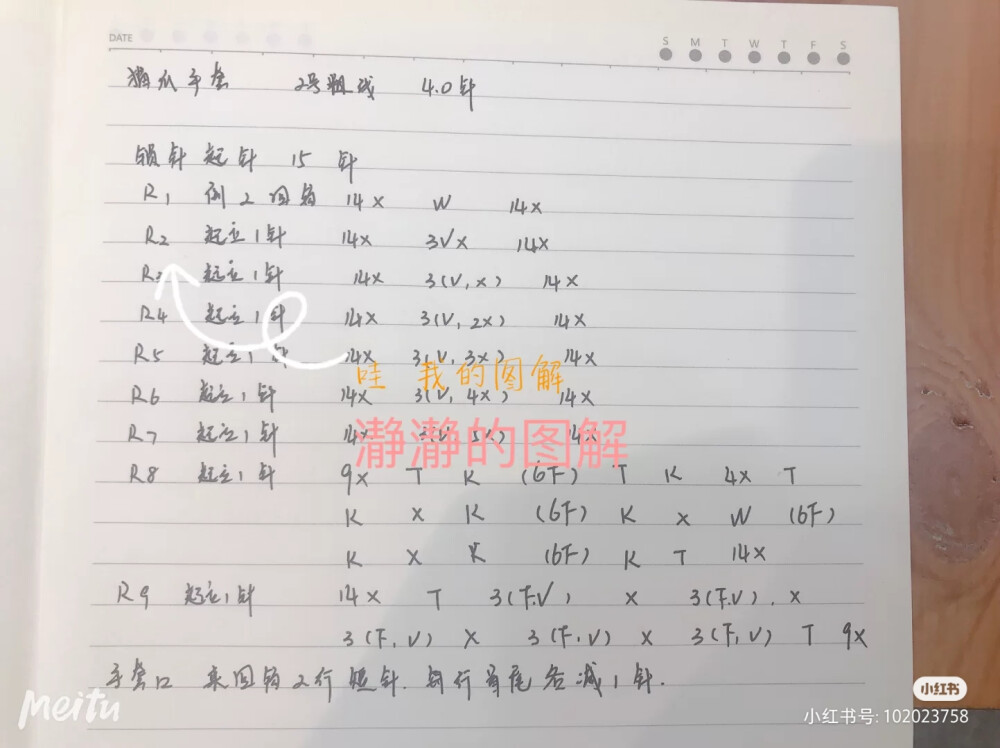 DATE
S M T W T F S
猫爪手套 2号粗线 4.0针
锁针起针 15 针
R1 倒2回钩 14X W 14X
R2 起立1针 14X 3VX 14X
R3 起立1针 14X 3(V,X) 14X
R4 起立1针 14X 3(V,2X) 14X
R5 起立1针 14X 3(V,3X) 14X
哇 我的图解
R6 起立1针 14X 3(V,4X) 14X
R7 起立1针 14X 14X
瀞瀞的图解
R8 起立1针 9X T K (6F) T K 4X T
K X K (6F) K X W (6F)
K X K (6F) K T 14X
R9 起立1针 14X T 3(F.V) X 3(F.V). X
3(F,V) X 3(F,V) X 3(F,V) T 9X
手套口 来回钩2行短针. 每行首尾各减1针.
Meitu
小红书
小红书号: 102023758